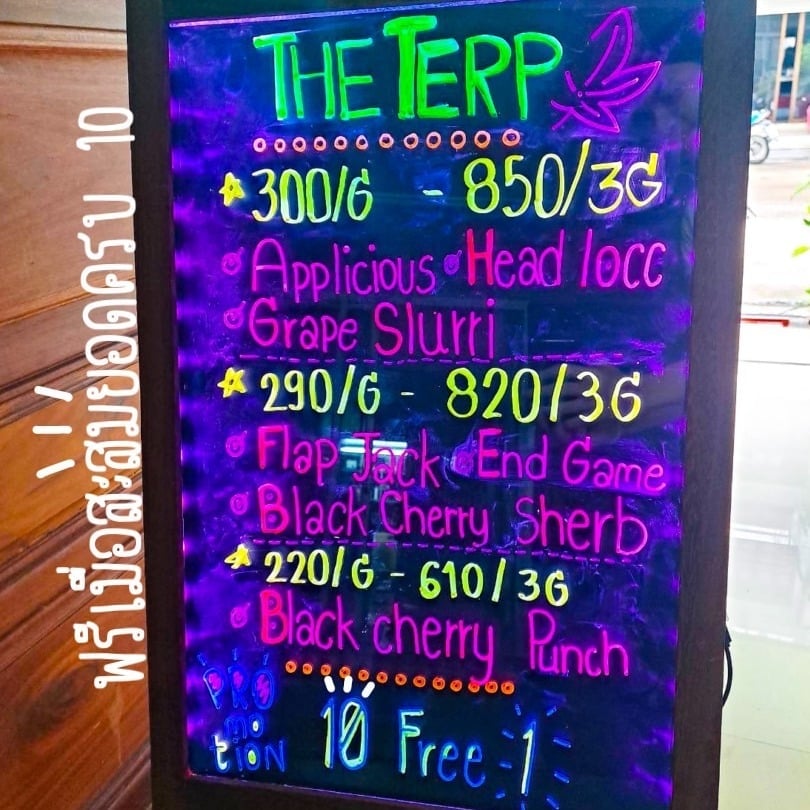 THE TERP
300/G - 850/3G
Applicious Head locc
Grape Slurri
290/G - 820/3G
Flap Jack End Game
Black Cherry Sherb
220/G - 610/3G
Black cherry Punch
PRO
MO
tION
10 Free 1
ฟรีเมื่อสะสมยอดครบ 10